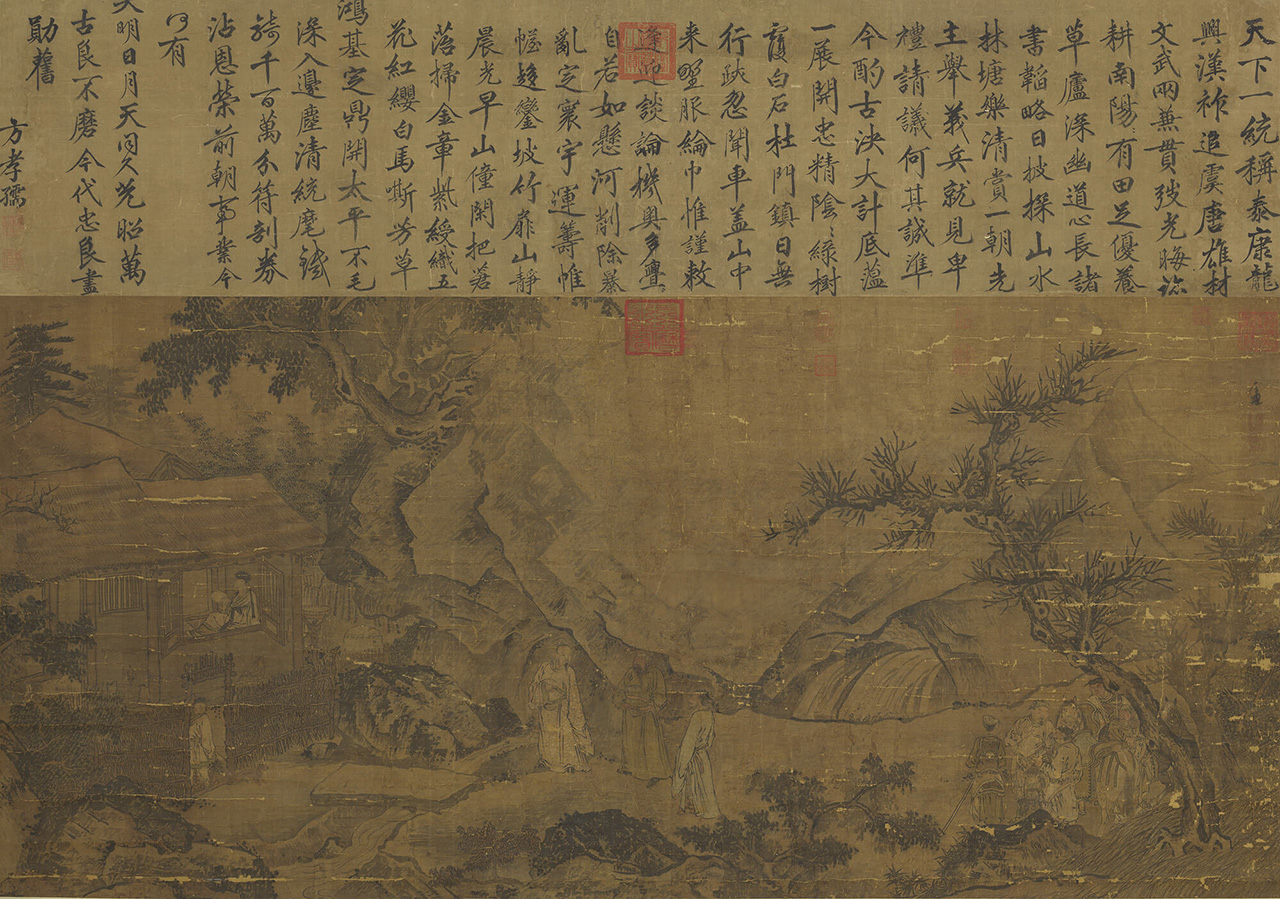 天下一統稱泰康龍
興漢祚追虞唐雄材
文武兩兼貫弢光晦跡
耕南陽有田足優養
草廬深幽道心長諸
書韜略日披探山水
林塘樂清賞一朝先
主舉義兵就見卑
禮請議何其誠準
今酌古決大計底蘊
一展開忠精陰〻綠樹
覆白石杜門鎮日無
行跡忽聞車蓋山中
来野服綸巾惟謹敕
逢迎談論機奧多亹
自若如懸河削除暴
亂定寰宇運籌帷
幄趍鑾坡竹扉山靜
晨光早山僮閑把蒼
苔掃金章紫綬織五
花紅纓白馬嘶芳草
鴻基定鼎開太平不毛
深入邊塵清統麾鐵
騎千百萬分符剖券
沾恩榮前朝事業今
何有
大明日月天同久光昭萬
古良不磨今代忠良盡
勛舊
方孝孺